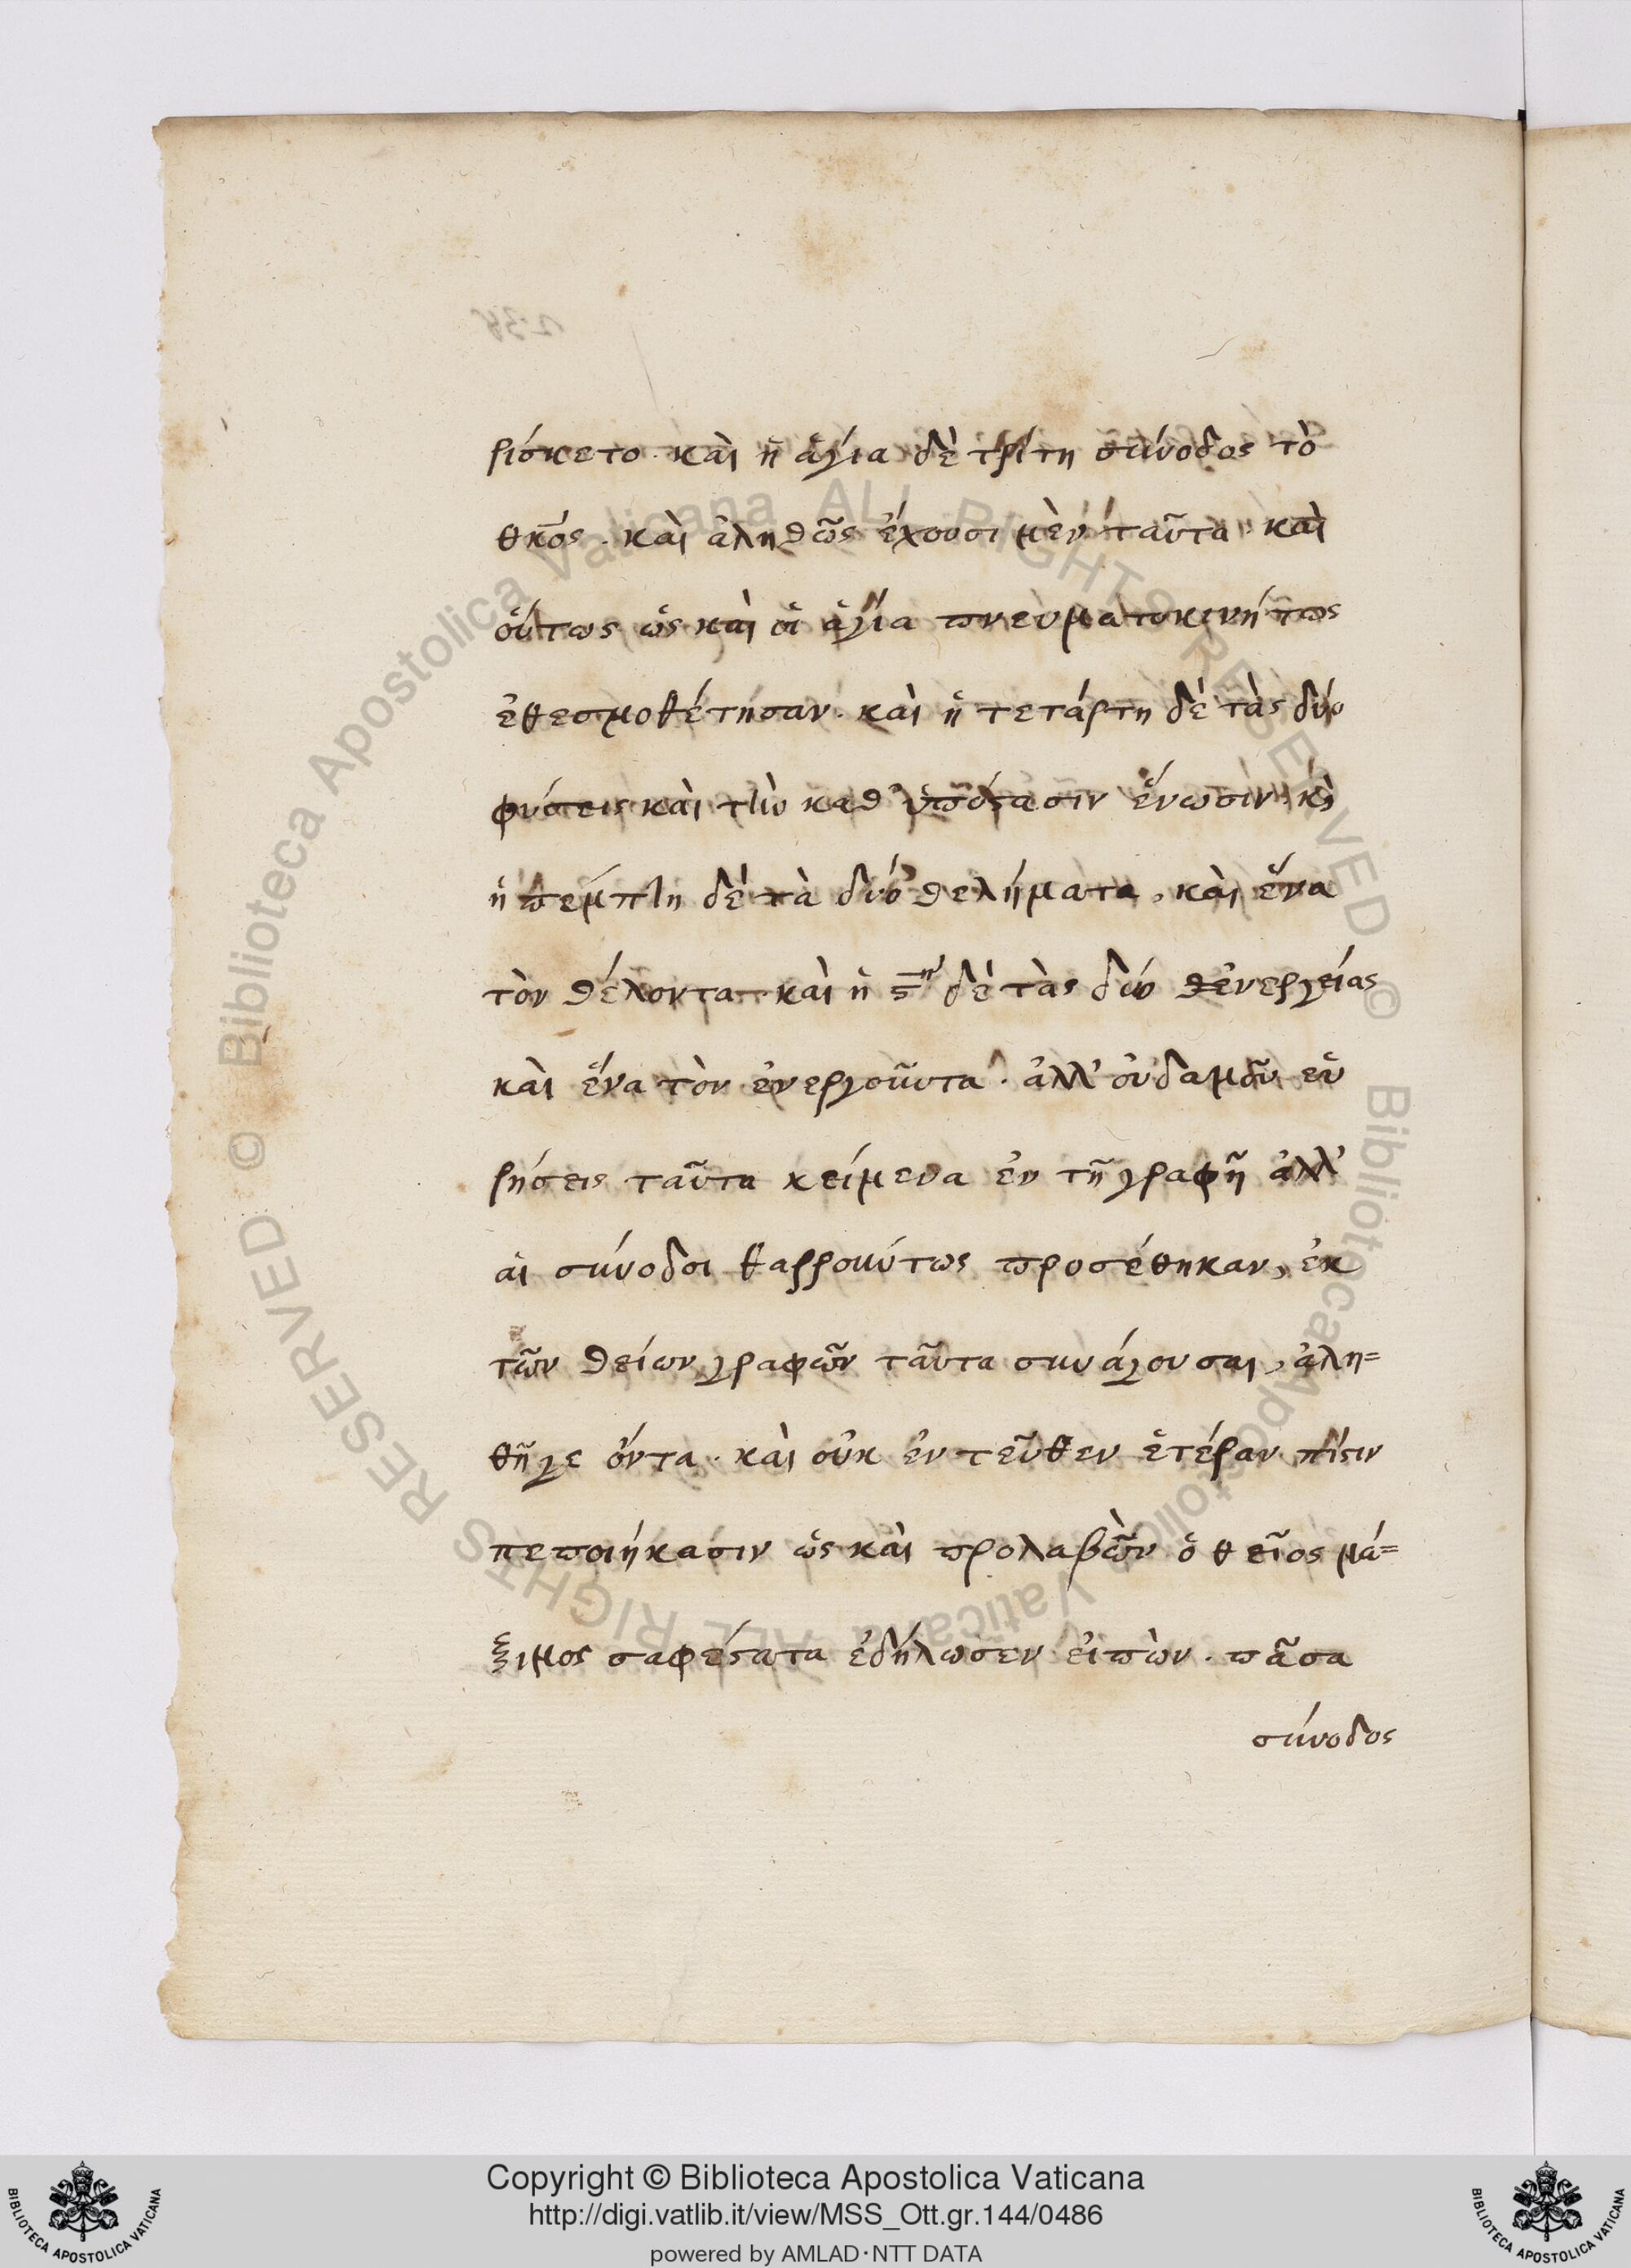 ρίσκετο. καὶ ἡ ἁγία δὲ τρίτη σύνοδος τὸ
θκος. καὶ ἀληθῶς ἔχουσι μὲν ταῦτα. καὶ
οὕτως ὡς καὶ οἱ ἅγια πνευματοκινήτως
ἐθεσμοθέτησαν. καὶ ἡ τετάρτη δὲ τὰς δύο
φύσεις καὶ τὴν καθ' ὑπόστασιν ἕνωσιν. κὶ
ἡ πέμπτη δὲ τὰ δύο θελήματα, καὶ ἕνα
τὸν θέλοντα. καὶ ἡ ϛη δὲ τὰς δύο ἐνεργείας
καὶ ἕνα τὸν ἐνεργοῦντα. ἀλλ' οὐδαμοῦ εὑ
ρήσεις ταῦτα κείμενα ἐν τῇ γραφῇ ἀλλ'
αἱ σύνοδοι θαρρούντως προσέθηκαν, ἐκ
τῶν θείων γραφῶν ταῦτα συνάγουσαι, ἀλη=
θῆ γε ὄντα. καὶ οὐκ ἐντεῦθεν ἑτέραν πίστιν
πεποιήκασιν ὡς καὶ προλαβὼν ὁ θεῖος μά=
ξιμος σαφέστατα ἐδήλωσεν εἰπὼν. πᾶσα
σύνοδος
Copyright © Biblioteca Apostolica Vaticana
http://digi.vatlib.it/view/MSS_Ott.gr.144/0486
powered by AMLAD·NTT DATA
© Biblioteca Apostolica Vaticana ALL RIGHTS RESERVED © Biblioteca Apostolica Vaticana ALL RIGHTS RESERVED
BIBLIOTECA APOSTOLICA VATICANA
BIBLIOTECA APOSTOLICA VATICANA